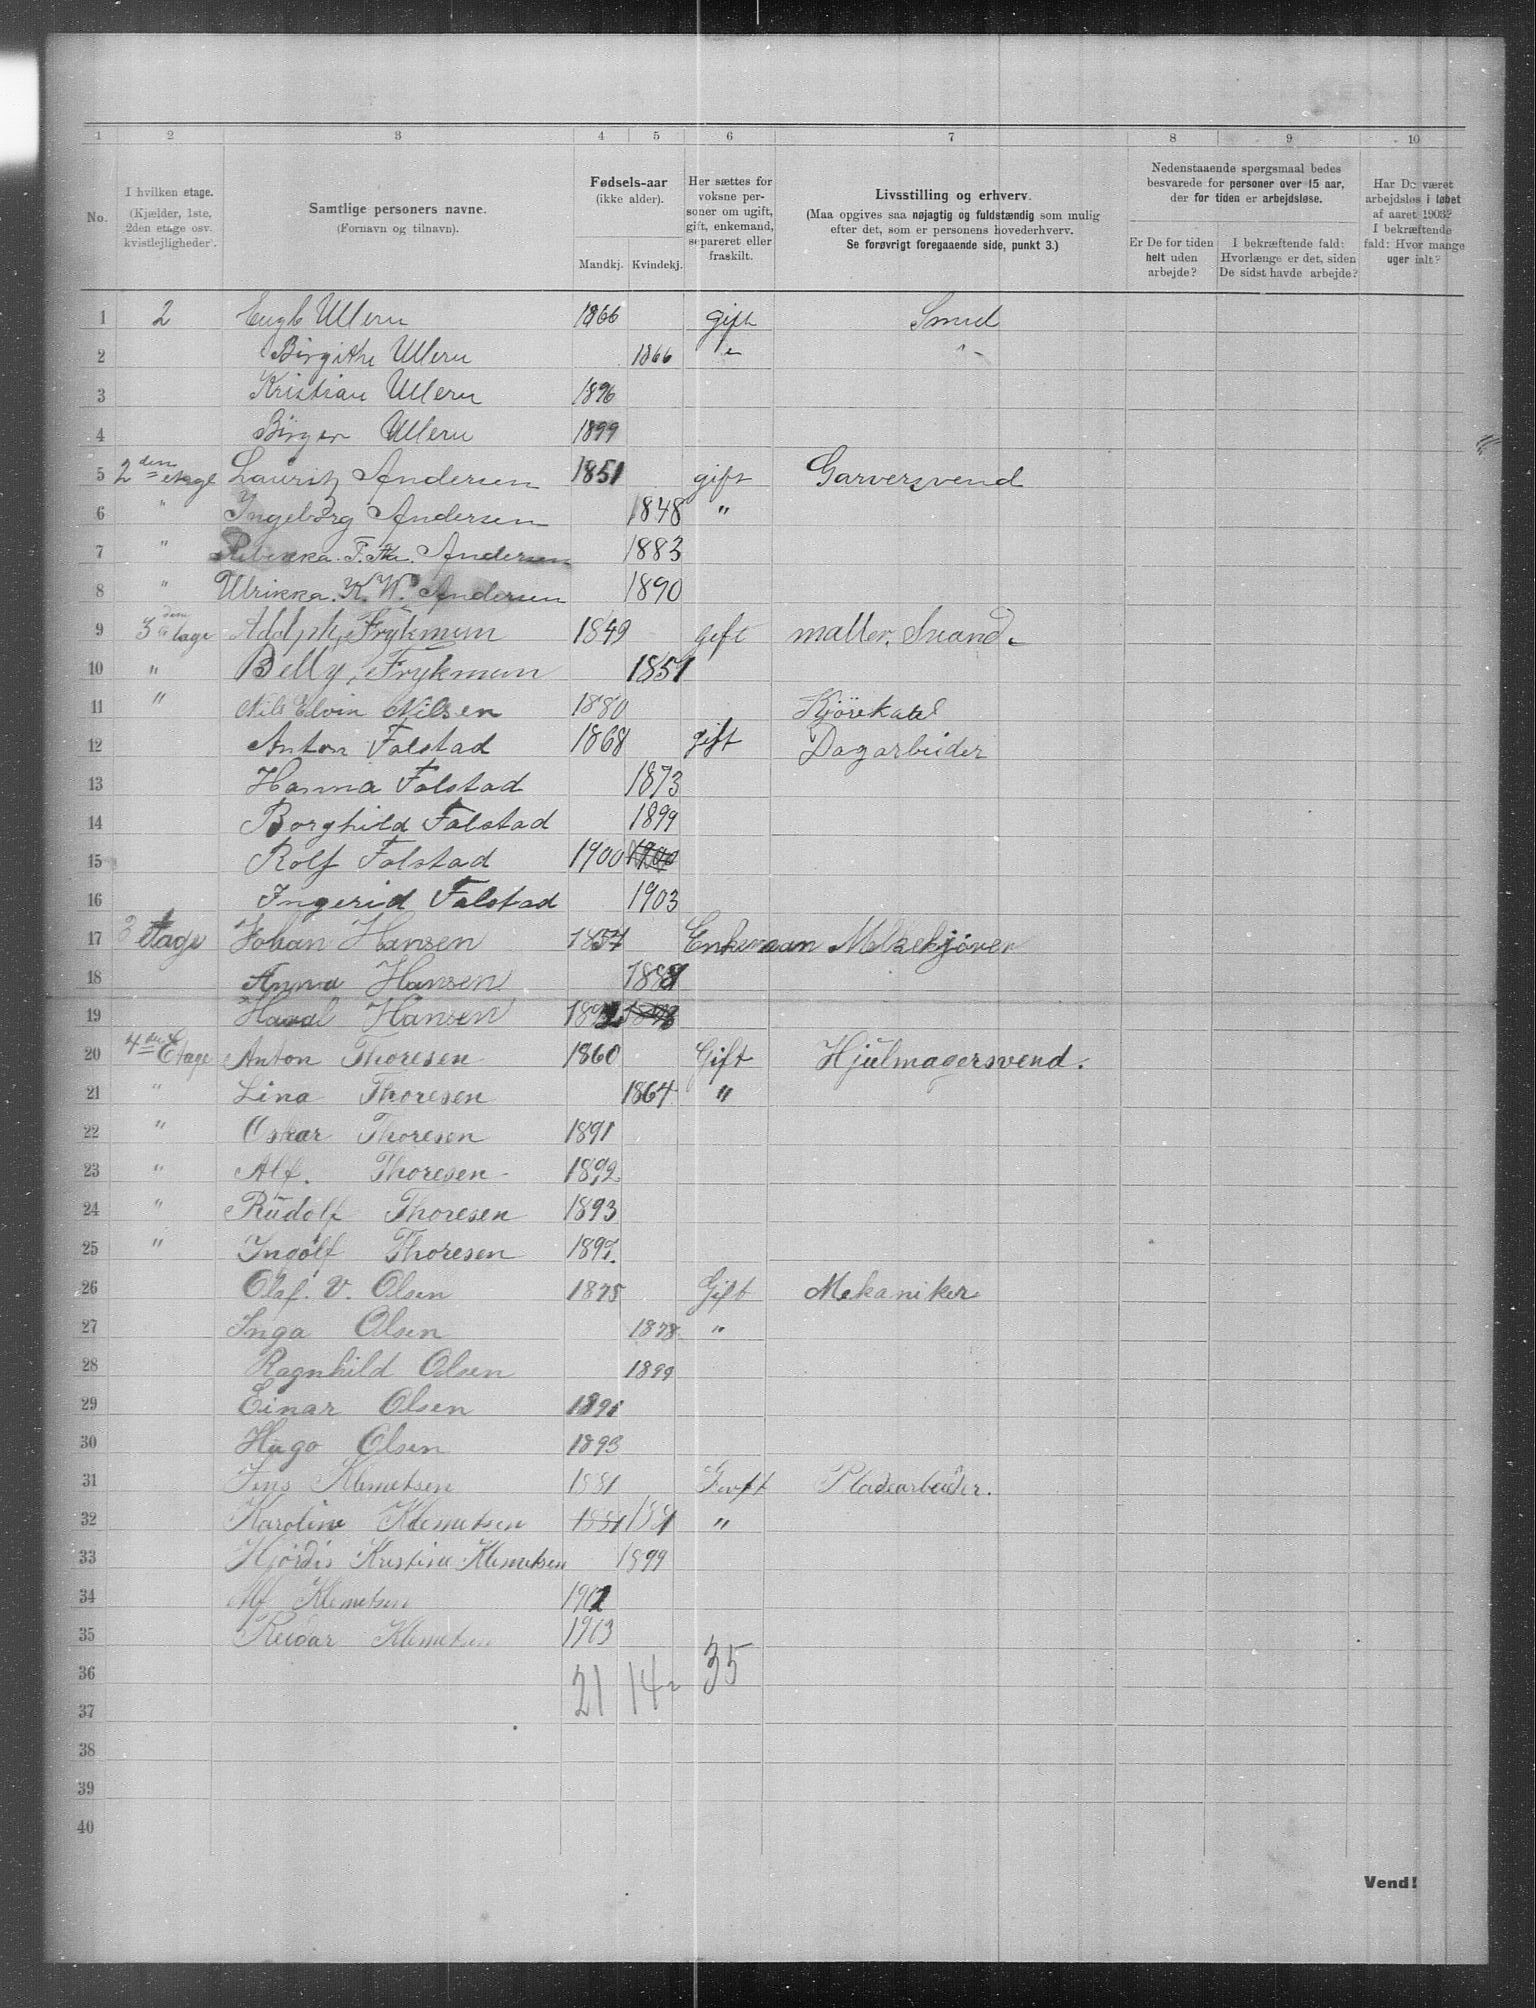 1 2 3 4 5 6 7 8 9 10
No.
I hvilken etage. (Kjælder, 1ste, 2den etage osv. kvistlejligheder).
Samtlige personers navne. (Fornavn og tilnavn).
Fødsels-aar (ikke alder).
Mandkj. Kvindekj.
Her sættes for voksne personer om ugift, gift, enkemand, separeret eller fraskilt.
Livsstilling og erhverv.
(Maa opgives saa nøjagtig og fuldstændig som mulig efter det, som er personens hovederhverv.
Se forøvrigt foregaaende side, punkt 3.)
Nedenstaaende spørgsmaal bedes besvarede for personer over 15 aar, der for tiden er arbejdsløse.
Er De for tiden helt uden arbejde?
I bekræftende fald: Hvorlænge er det, siden De sidst havde arbejde?
Har De været arbejdsløs i løbet af aaret 1903? I bekræftende fald: Hvor mange uger ialt?
1 2 Ulleru 1866 gift Smed
2 Birgithe Ulleru 1866 "
3 Kristian Ulleru 1896
4 Birger Ulleru 1899
5 2den etage Lauritz Andersen 1851 gift Garversvend
6 " Ingeborg Andersen 1848 "
7 " Rebekka. F. Andersen 1883
8 " Ulrikka. K. W. Andersen 1890
9 3den etage Adolph, Frykman 1849 gift maller. Svand.
10 " Belly, Frykman 1851
11 " Nils Elvin Nilsen 1880 Kjørekarl
12 Anton Falstad 1868 gift Dagarbeider
13 Hanna Falstad 1873
14 Borghild Falstad 1899
15 Rolf Falstad 1900 1900
16 Ingerid Falstad 1903
17 3 Etage Johan Hansen 1857 Enkeman Melkekjører
18 Anna Hansen 1888
19 Hansen
20 4de Etage Anton Thoresen 1860 Gift Hjulmagersvend.
21 " Lina Thoresen 1864 "
22 " Oskar Thoresen 1891
23 " Alf. Thoresen 1892
24 " Rudolf Thoresen 1893
25 " Ingolf Thoresen 1897.
26 Olaf. V. Olsen 1875 Gift Mekaniker
27 Inga Olsen 1878 "
28 Ragnhild Olsen 1899
29 Einar Olsen 1891
30 Hugo Olsen 1893
31 Jens Klemetsen 1881 Gift Pladearbeider.
32 Karoline Klemetsen 1881 1881 "
33 Hjördis Kristine Klemetsen 1899
34 Alf Klemetsen 1901
35 Reidar Klemetsen 1903
36 21 14 35
37
38
39
40
Vend!